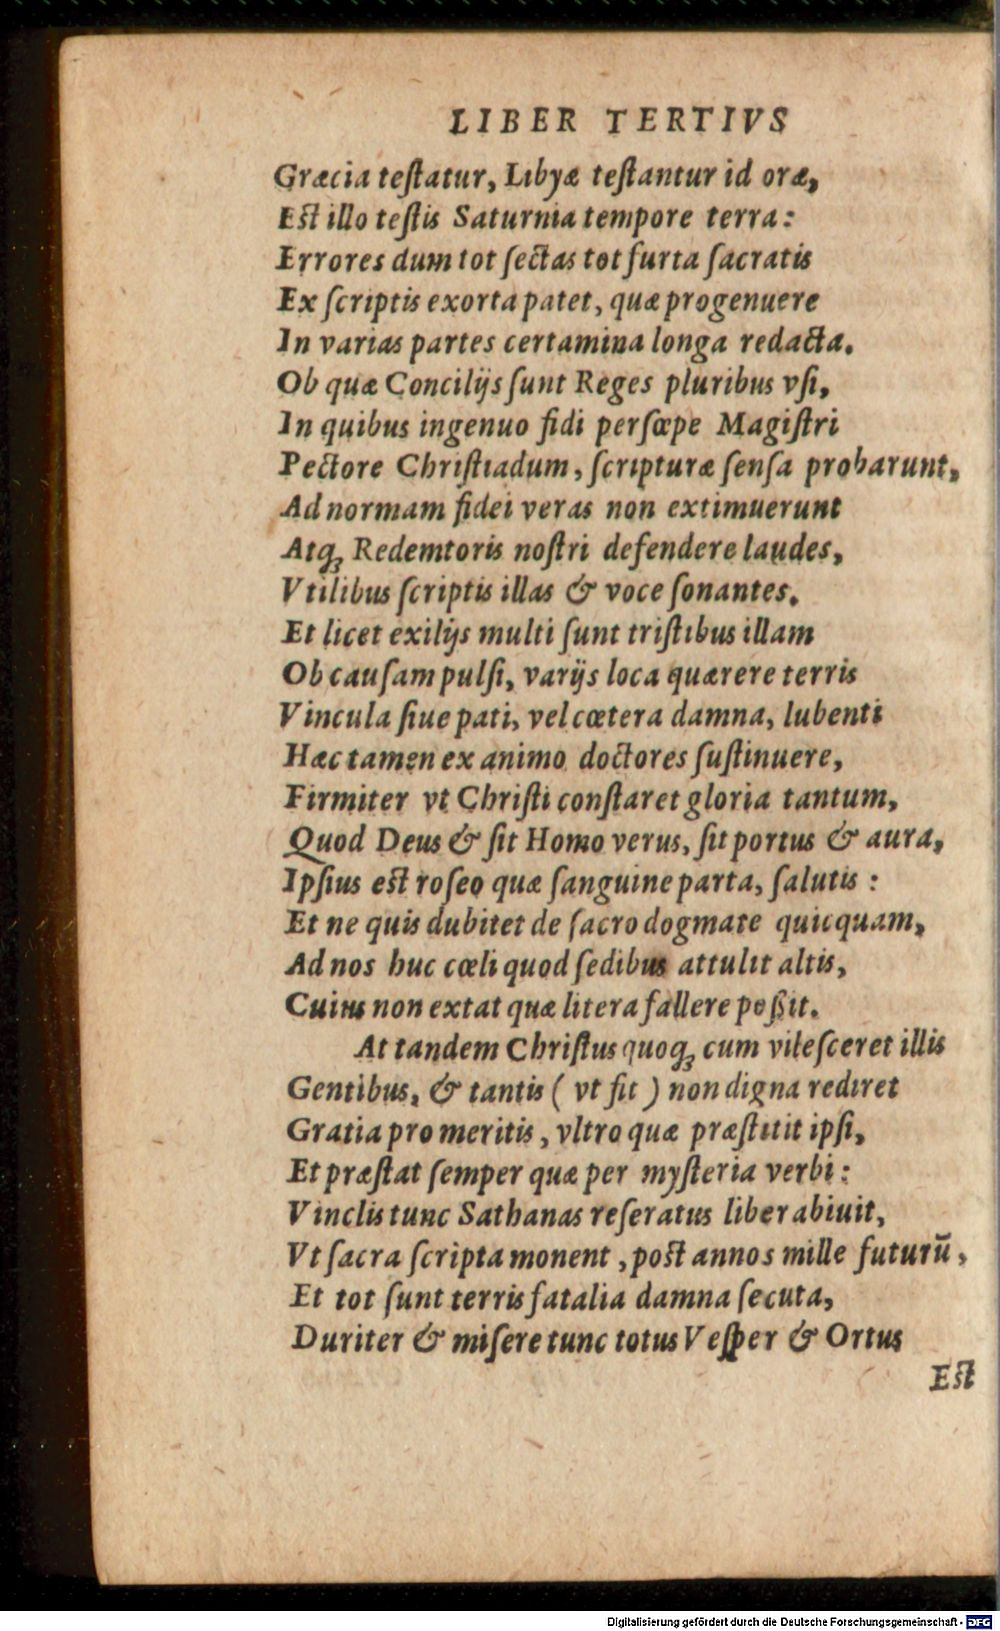 LIBER TERTIVS
Græcia teſtatur, Libyæ teſtantur id oræ,
Eſt illo teſtis Saturnia tempore terra:
Errores dum tot ſectas tot furta ſacratis
Ex ſcriptis exorta patet, quæ progenuere
In varias partes certamina longa redacta.
Ob quæ Concilijs ſunt Reges pluribus vſi,
In quibus ingenuo fidi perſœpe Magiſtri
Pectore Chriſtiadum, ſcripturæ ſenſa probarunt,
Ad normam fidei veras non extimuerunt
Atq; Redemtoris noſtri defendere laudes,
Vtilibus ſcriptis illas & voce ſonantes.
Et licet exilijs multi ſunt triſtibus illam
Ob cauſam pulſi, varijs loca quærere terris
Vincula ſiue pati, vel cœtera damna, lubenti
Hæc tamen ex animo doctores ſuſtinuere,
Firmiter vt Chriſti conſtaret gloria tantum,
Quod Deus & ſit Homo verus, ſit portus & aura,
Ipſius eſt roſeo quæ ſanguine parta, ſalutis :
Et ne quis dubitet de ſacro dogmate quicquam,
Ad nos huc cœli quod ſedibus attulit altis,
Cuius non extat quæ litera fallere poßit.
At tandem Chriſtus quoq; cum vileſceret illis
Gentibus, & tantis ( vt fit ) non digna rediret
Gratia pro meritis, vltro quæ præſtitit ipſi,
Et præſtat ſemper quæ per myſteria verbi:
Vinclis tunc Sathanas reſeratus liber abiuit,
Vt ſacra ſcripta monent, poſt annos mille futurū,
Et tot ſunt terris fatalia damna ſecuta,
Duriter & miſere tunc totus Veſper & Ortus
Eſt
Digitalisierung gefördert durch die Deutsche Forschungsgemeinschaft - DFG